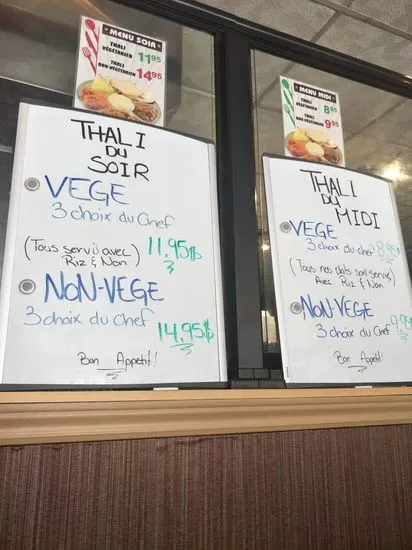 MENU SOIR
THALI
VÉGÉTARIEN
11 95
THALI
NON VÉGÉTARIEN
14 95
THALI
DU
SOIR
VEGE
3 choix du Chef
(Tous servis avec)
Riz & Nan
11.95$
NON-VEGE
3 choix du Chef
14.95$
Bon Appetit!
MENU MIDI
THALI
VÉGÉTARIEN
8 95
THALI
NON VÉGÉTARIEN
9 95
THALI
DU
MIDI
VEGE
3 choix du chef 8.95$
(Tous nos plats sont servis)
Avec Riz & Nan
NON-VEGE
3 choix du Chef
9.95
Bon Appetit!